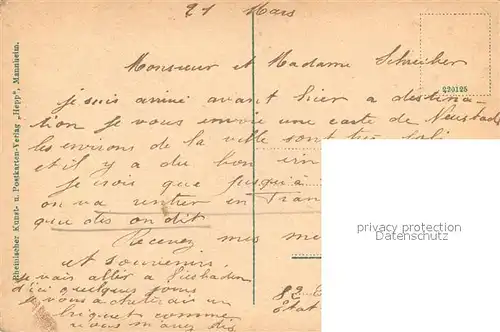 21 Mars
Monsieur et Madame Schreiber
je suis arrivé avant hier a destina
tion je vous envoie une carte de Wiesbade
les environs de la ville sont très joli
et il y a du bon
je crois que jusqu'à
on va rentrer en Fran
que dis on dit
Recevez mes me
et souvenirs
je vais aller a Wiesbaden
d'ici quelques jours
je vous achèterais un
briquet comme
vous m'avez dit
82
Etat
220125
Rheinischer Kunst- u. Postkarten-Verlag „Hepp", Mannheim.
privacy protection
vie privée